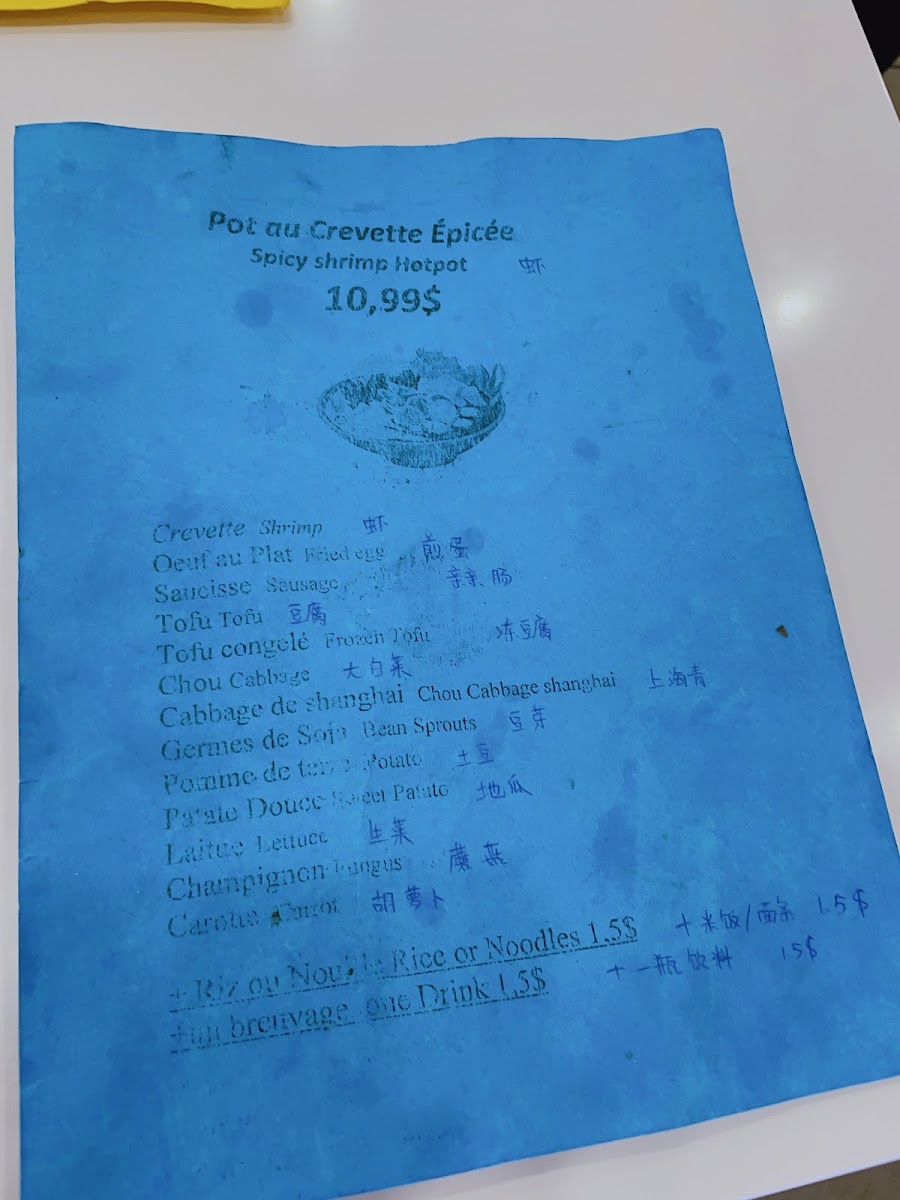 Pot au Crevette Épicée
Spicy shrimp Hotpot 虾
10,99$
Crevette Shrimp 虾
Oeuf au Plat Fried egg 煎蛋
Saucisse Sausage 亲亲肠
Tofu Tofu 豆腐
Tofu congelé Frozen Tofu 冻豆腐
Chou Cabbage 大白菜
Cabbage de shanghai Chou Cabbage shanghai 上海青
Germes de Soja Bean Sprouts 豆芽
Pomme de terre Potato 土豆
Patate Douce Sweet Patato 地瓜
Laitue Lettuce 生菜
Champignon Fungus 蘑菇
Carotte Carrot 胡萝卜
+ Riz ou Nouille Rice or Noodles 1.5$ + 米饭/面条 1.5$
+un breuvage one Drink 1,5$ + 一瓶饮料 15$